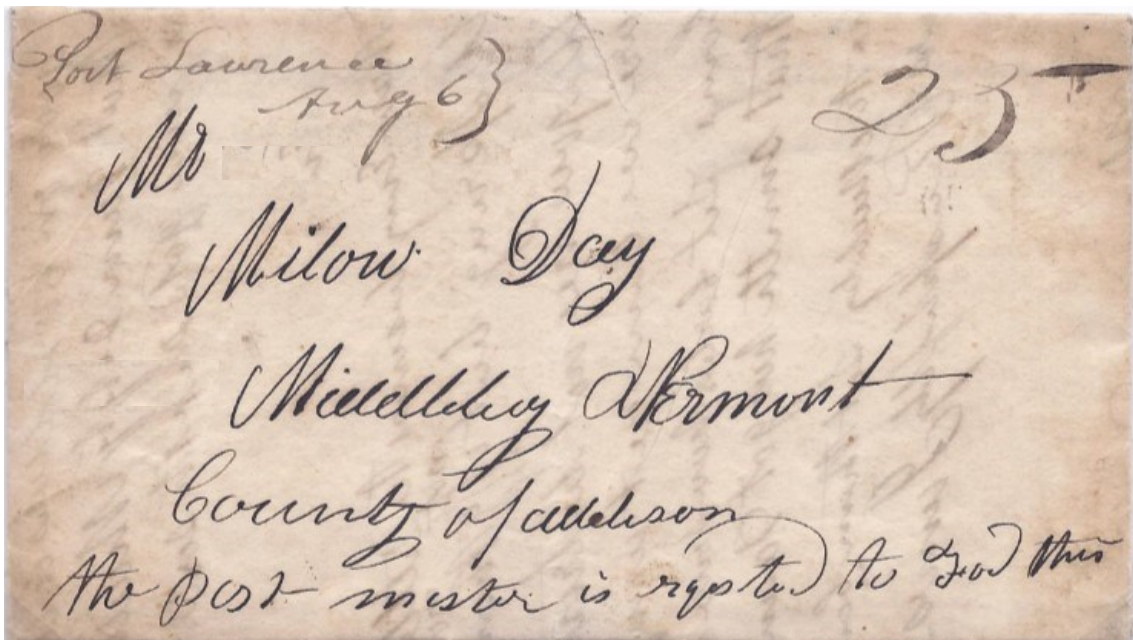 Port Lawrence
Aug 6
25
Mr
Milow Day
Middlebuy Vermont
County of addison
the post mester is rqested to Ford this